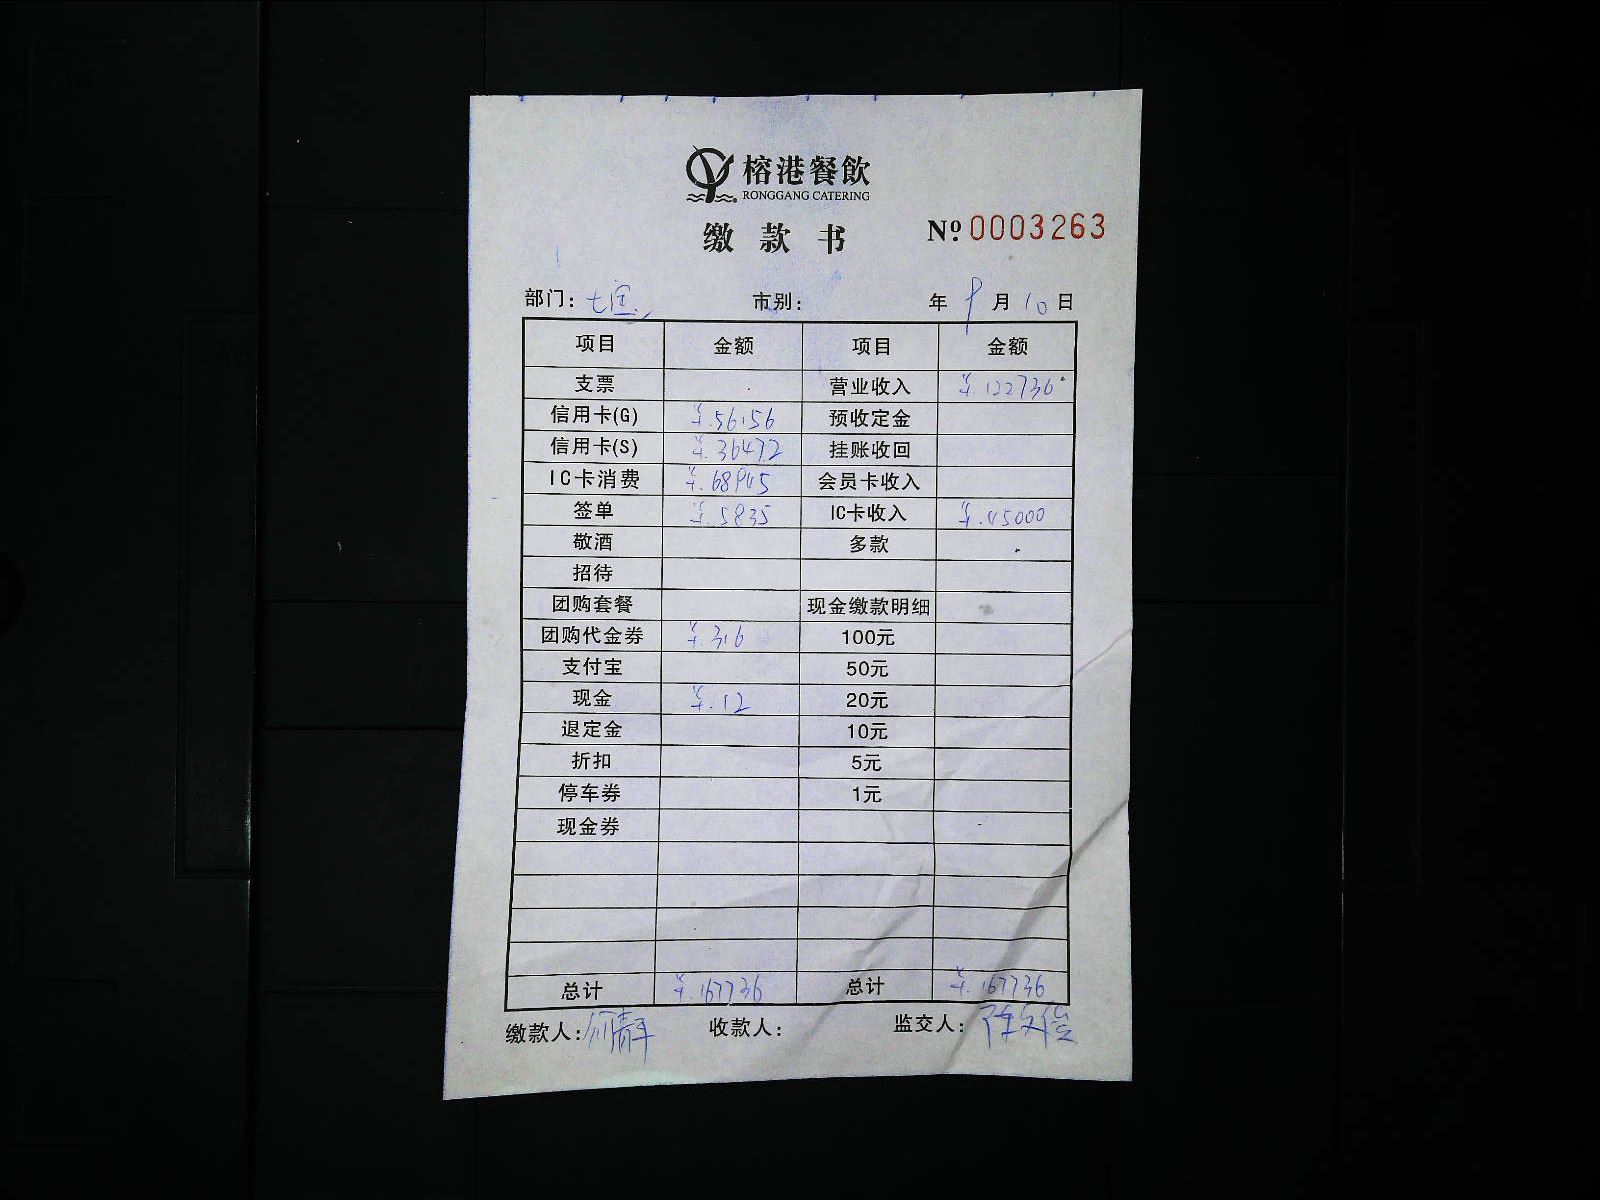 榕港餐飲
RONGGANG CATERING
缴款书 Nº 0003263
部门: 七宝 市别: 年 9 月 10 日
项目 金额 项目 金额
支票 营业收入 ¥.122736
信用卡(G) ¥.56156 预收定金
信用卡(S) ¥.36472 挂账收回
IC卡消费 ¥.68945 会员卡收入
签单 ¥.5835 IC卡收入 ¥.45000
敬酒 多款
招待
团购套餐 现金缴款明细
团购代金券 ¥.316 100元
支付宝 50元
现金 ¥.12 20元
退定金 10元
折扣 5元
停车券 1元
现金券
总计 ¥.167736 总计 ¥.167736
缴款人: 何静 收款人: 监交人: 陈文